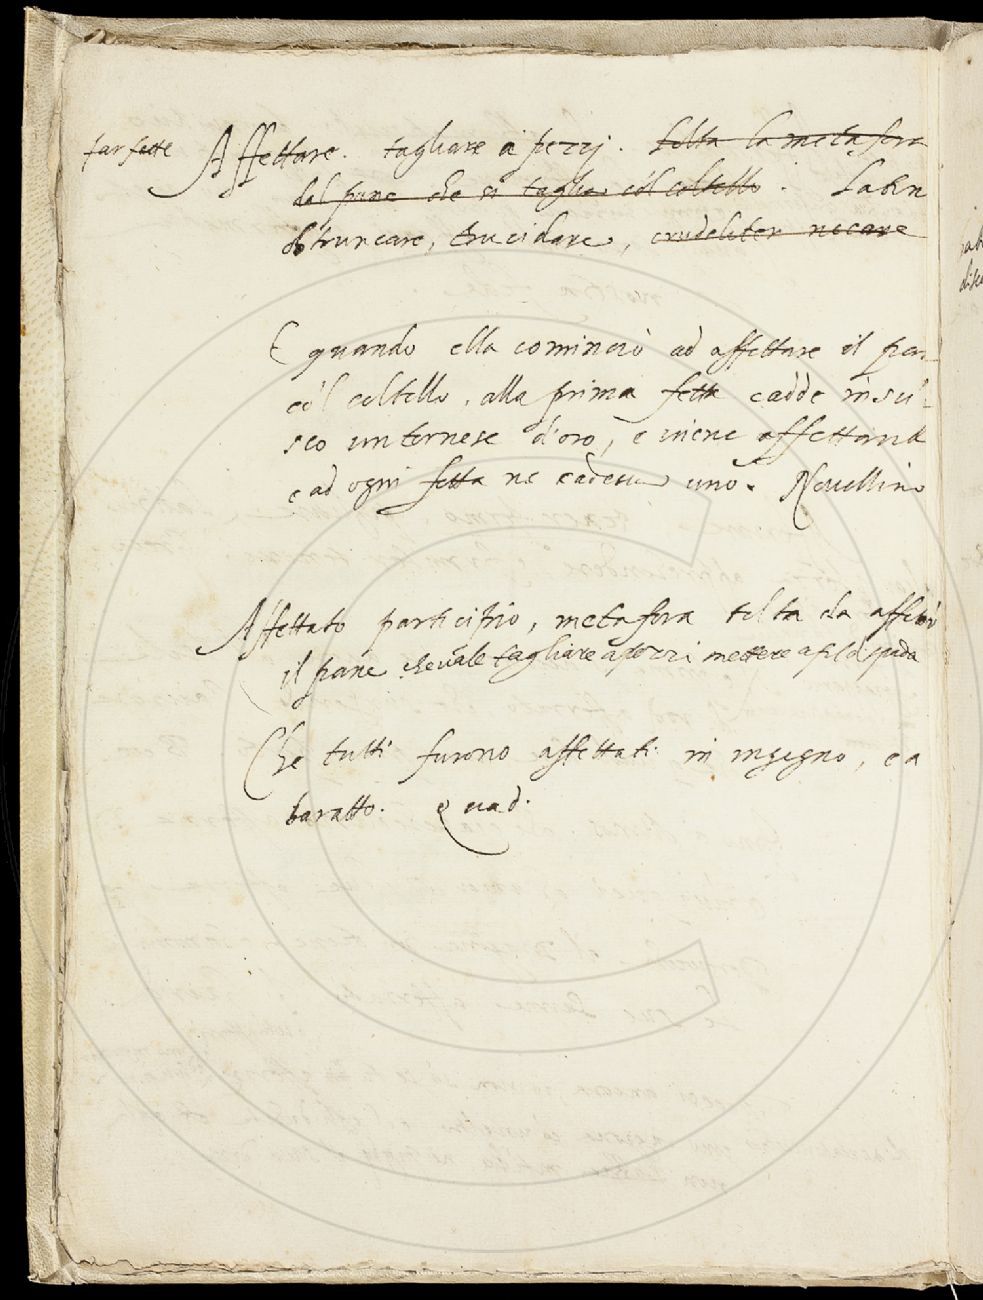 far fette
Affettare. tagliare a pezzj. tolta la metafora
dal pane che si taglia co'l coltello. Latin
obtruncare, trucidare, crudeliter necare
E quando ella cominciò ad affettare il pan
co'l coltello, alla prima fetta cadde in sul
seo un tornese d'oro, e viene affettand
e ad ogni fetta ne cadeva uno. Novellino
Affettato participio, metafora tolta da affettar
il pane che vale tagliare a pezzi mettere a fil di spada
Che tutti furono affettati in ingegno, e a
baratto. Quad.